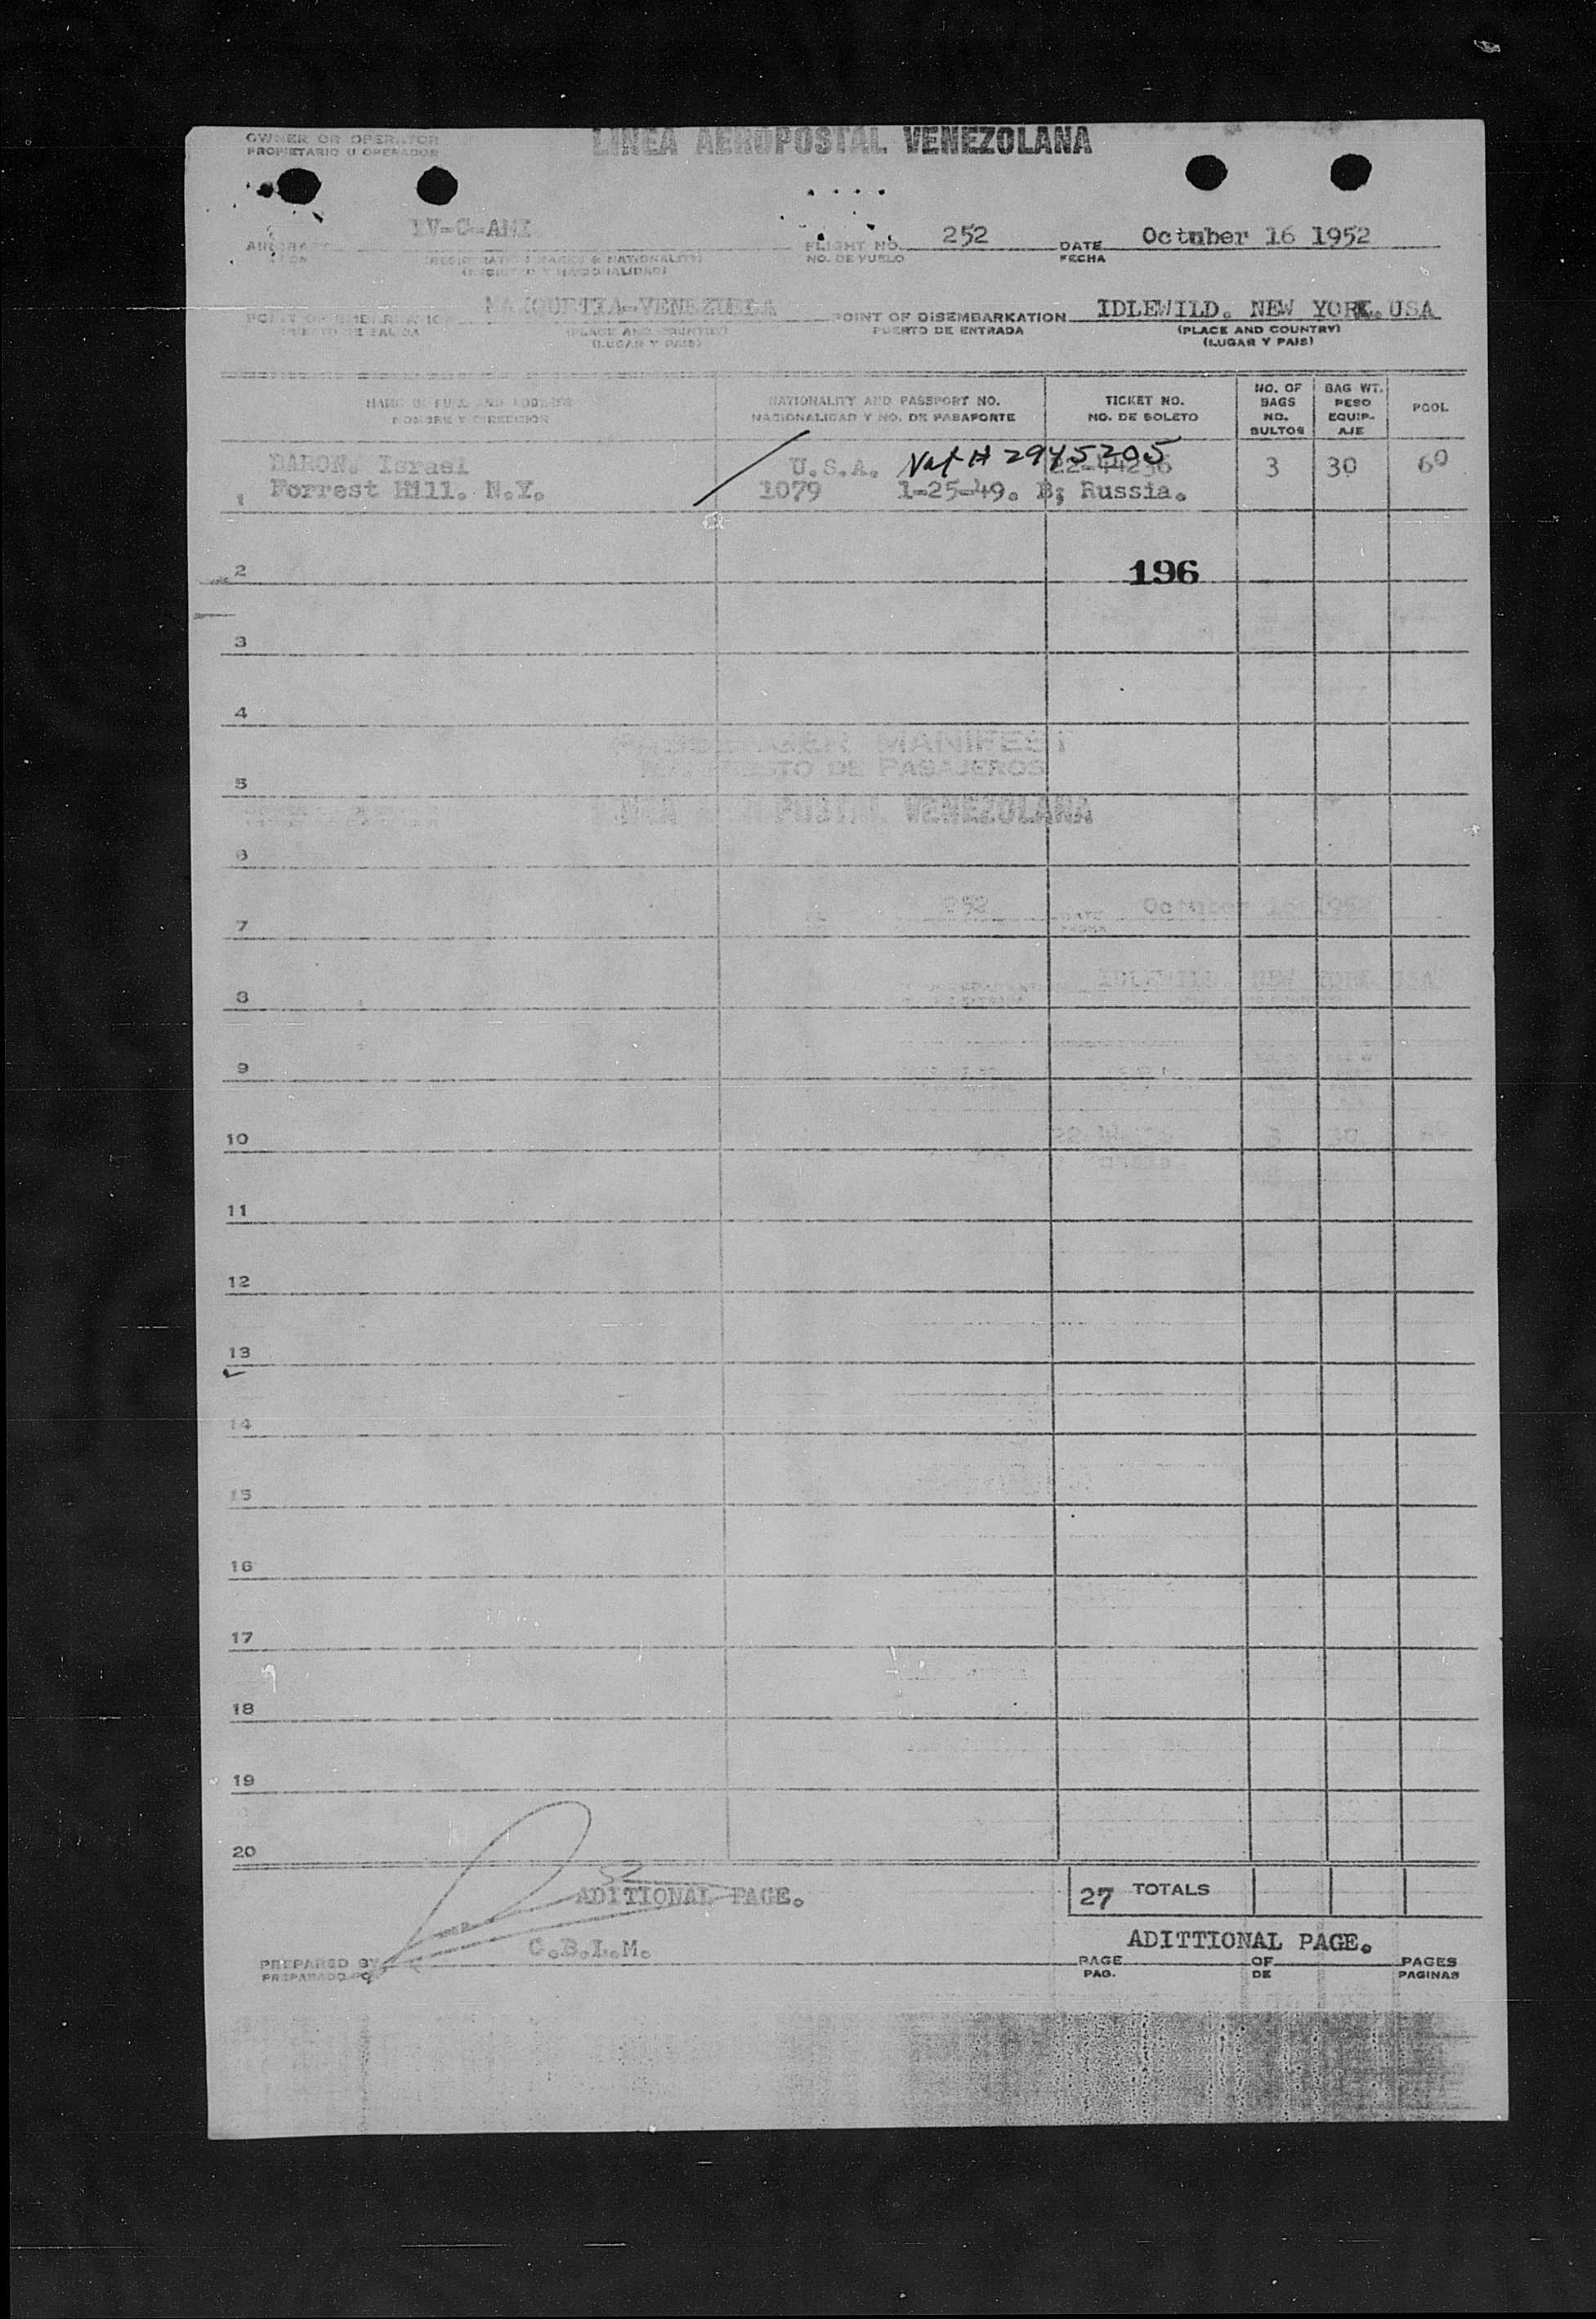 OWNER OR OPERATOR
PROPIETARIO U OPERADOR
LINEA AEROPOSTAL VENEZOLANA
FLIGHT NO. 252 DATE Octuber 16 1952
NO. DE VUELO FECHA
(REGISTRATION MARKS & NATIONALITY)
MAIQUETIA-VENEZUELA POINT OF DISEMBARKATION IDLEWILD. NEW YORK. USA
PUERTO DE SALIDA (PLACE AND COUNTRY) PUERTO DE ENTRADA (PLACE AND COUNTRY)
(LUGAR Y PAIS) (LUGAR Y PAIS)
NAME IN FULL AND ADDRESS NATIONALITY AND PASSPORT NO. TICKET NO. NO. OF BAGS BAG WT. POOL
NOMBRE Y DIRECCION NACIONALIDAD Y NO. DE PASAPORTE NO. DE BOLETO NO. BULTOS PESO EQUIP-AJE
BARON. Israel U.S.A. Nat # 2945205 3 30 60
1 Forrest Hill. N.Y. 1079 1-25-49. B; Russia.
2 196
3
4
PASSENGER MANIFEST
MANIFIESTO DE PASAJEROS
5
LINEA AEROPOSTAL VENEZOLANA
6
252 October 16 1952
7
IDLEWILD. NEW YORK. USA
8
9
10
11
12
13
14
15
16
17
18
19
20
ADITIONAL PAGE. 27 TOTALS
C.B.L.M. ADITTIONAL PAGE.
PREPARED BY PAGE OF PAGES
PREPARADO POR PAG. DE PAGINAS